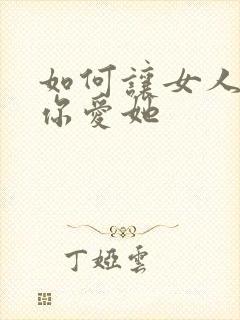 如何讓女人
你愛她
丁婭雲